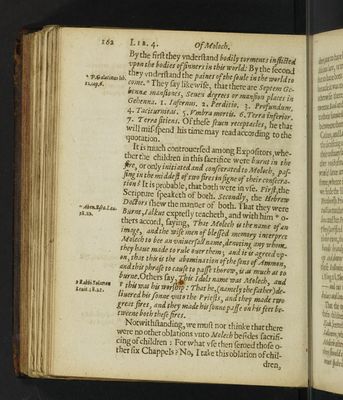 162 LIB. 4. Of Moloch.
By the first they vnderstand bodily torments inflicted
vpon the bodies of sinners in this world: By the second
they vnderstand the paines of the soule in the world to
come. * They say likewise, that there are Septem Ge-
hennæ mansiones, Seuen degrees or mansion places in
Gehenna. 1. Infernus. 2. Perditio. 3. Profundum.
4. Taciturnitas. 5. Vmbra mortis. 6. Terra inferior.
7. Terra sitiens. Of these seuen receptacles, he that
will mis-spend his time may read according to the
quotation.
It is much controuersed among Expositors, whe-
ther the children in this sacrifice were burnt in the
fire, or only initiated and consecrated to Moloch, pas-
sing in the middest of two fires in signe of their consecra-
tion? It is probable, that both were in vse. First, the
Scripture speaketh of both. Secondly, the Hebrew
Doctors shew the manner of both. That they were
Burnt, Ialkut expresly teacheth, and with him * o-
thers accord, saying, That Moloch is the name of an
image, and the wise men of blessed memory interpret
Moloch to bee an vniuersall name, denoting any whom
they haue made to rule ouer them; and it is agreed vp-
on, that this is the abomination of the sons of Ammon,
and this phrase to cause to passe thorow, is as much as to
burne. Others say, This Idols name was Moloch, and
this was his worship: That he, (namely the father) de-
liuered his sonne vnto the Priests, and they made two
great fires, and they made his sonne passe on his feet be-
tweene both these fires.
Notwithstanding, we must not thinke that there
were no other oblations vnto Moloch besides sacrifi-
cing of children: For what vse then serued those o-
ther six Chappels? No, I take this oblation of chil-
dren,
* P. Galatinus lib.
12. cap. 6.
* Aben. Ezra. Leu.
18. 21.
Rabbi Salomon
Leuit. 18. 21.